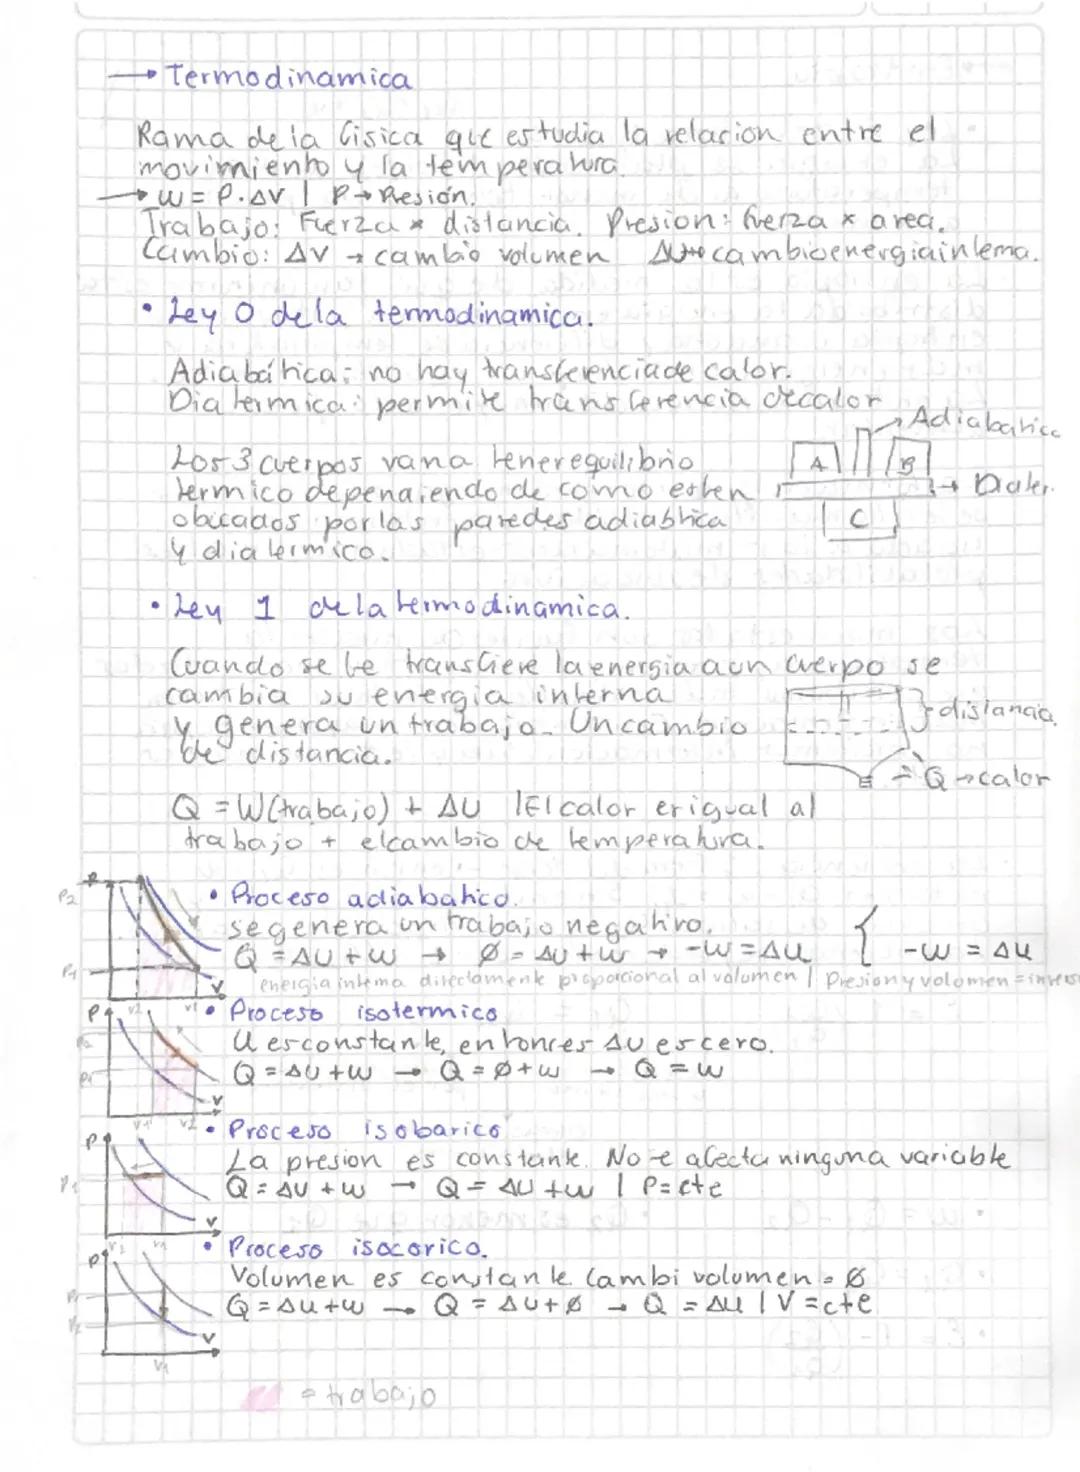 → Termodinamica
Rama de la fisica que estudia la relacion entre el
movimiento y la temperatura.
→ W = P·ΔV | P → Presión.
Trabajo: Fuerza * distancia. Presion: fuerza x area.
Cambio: ΔV → cambio volumen ΔU → cambio energia interna.
• Ley 0 de la termodinamica.
Adiabática: no hay transferencia de calor.
Diatermica: permite transferencia de calor
Adiabatica
Los 3 cuerpos van a tener equilibrio
A B
termico depenaiendo de como esten
→ Diater.
obicados por las paredes adiabtica
C
y diatermico.
• Ley 1 de la termodinamica.
Cuando se le transfiere la energia a un cuerpo se
cambia su energia interna
y genera un trabajo. Un cambio
distancia.
de distancia.
Q → calor
Q = W(trabajo) + ΔU | El calor er igual al
trabajo + el cambio de temperatura.
• Proceso adiabatico.
se genera un trabajo negativo.
Q = ΔU + W → Ø = ΔU + W → -W = ΔU { -W = ΔU
energia interna directamente proporcional al volumen | Presion y volumen = invers
P P2 P1 V V2 V1
• Proceso isotermico
U es constante, entonces ΔU es cero.
Q = ΔU + W → Q = Ø + W → Q = W
P P2 P1 V V1 V2
• Proceso isobarico
La presion es constante. No se afecta ninguna variable
Q = ΔU + W → Q = ΔU + W | P = cte
P P1 V V2 V1
• Proceso isocorico.
Volumen es constante. Cambi volumen = Ø
Q = ΔU + W → Q = ΔU + Ø → Q = ΔU | V = cte
P P1 P2 V V1
= trabajo